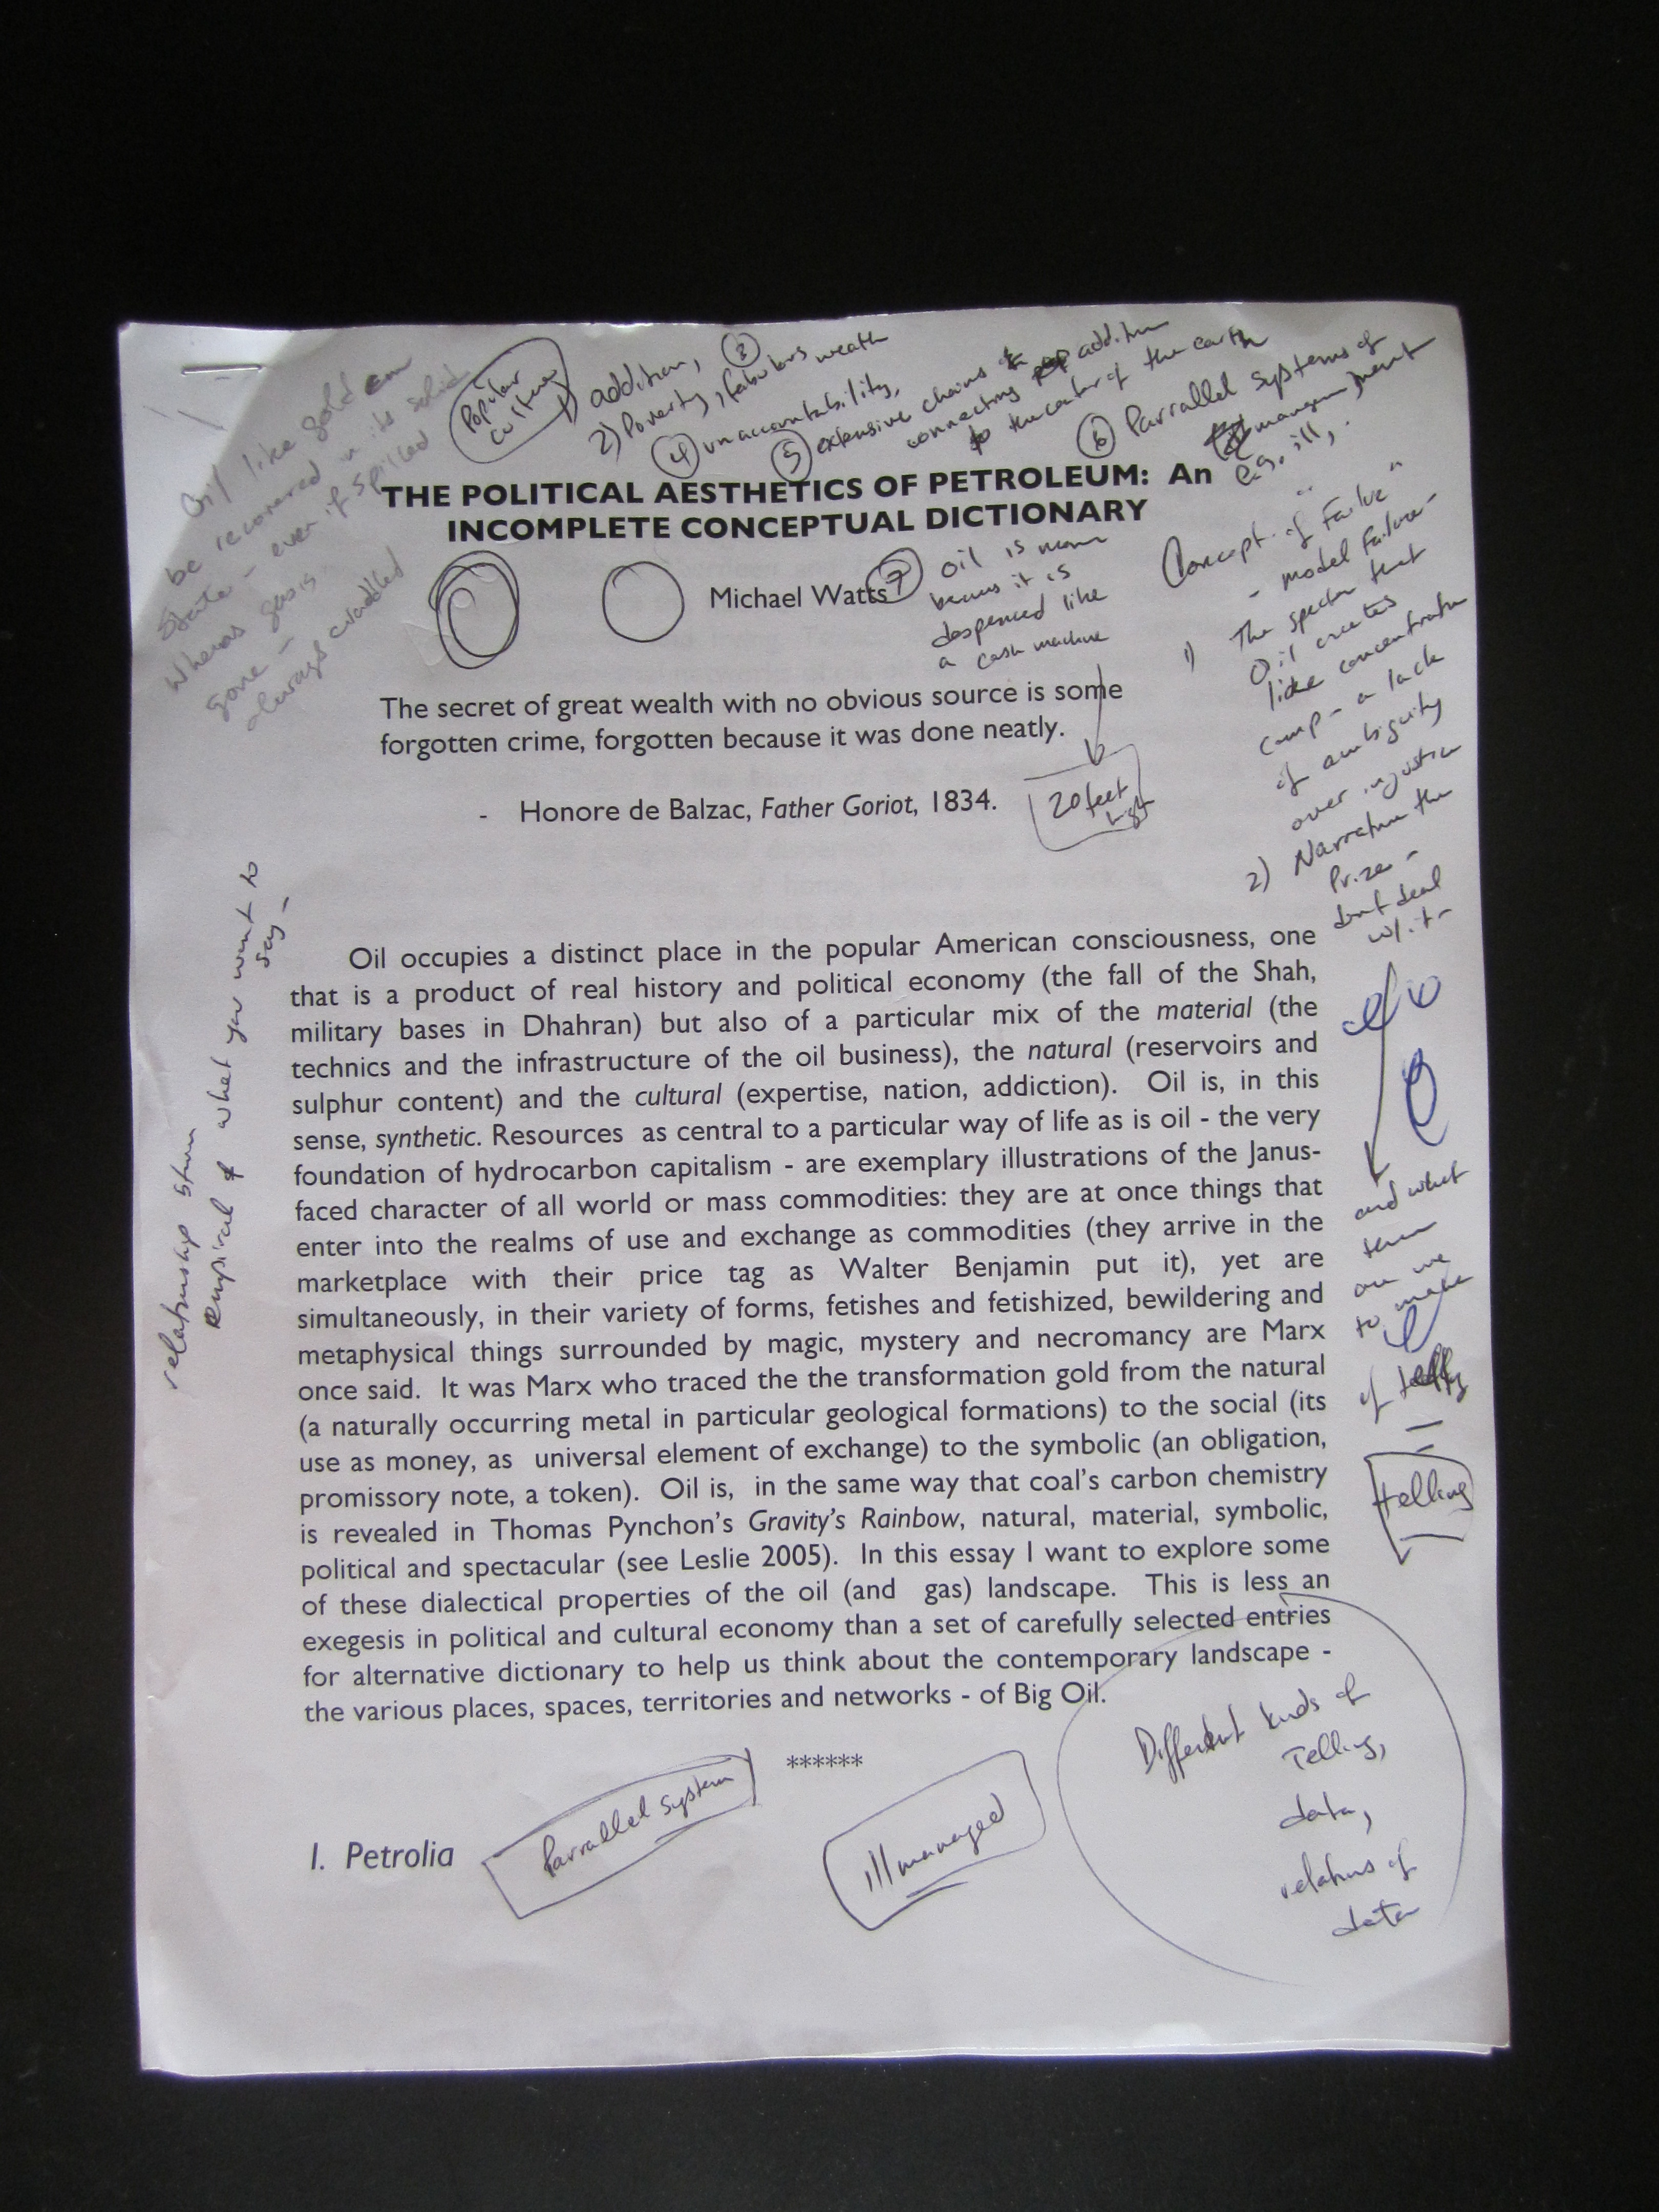 Oil like gold can
be recovered in its solid
State - even if spilled
Whereas gas is
gone -
always
Popular
culture
1) addition,
2) Poverty, ③ fabulous weath
④ unaccountability,
⑤ extensive chains of
connecting addition
to the center of the earth
⑥ Parrallel systems of
management
e.g. ill,
THE POLITICAL AESTHETICS OF PETROLEUM: An
INCOMPLETE CONCEPTUAL DICTIONARY
Michael Watts
⑦ oil is
it is
despenced like
a cash machine
20 feet
Concept of "Failure"
- model Failure -
1) The specter that
Oil creates
like concentration
camp - a lack
of ambiguity
over injustice
2) Narrative the
Prize -
dont deal
w/ it -
The secret of great wealth with no obvious source is some
forgotten crime, forgotten because it was done neatly.
- Honore de Balzac, Father Goriot, 1834.
relationship
empirical & what you want to
say -
Oil occupies a distinct place in the popular American consciousness, one
that is a product of real history and political economy (the fall of the Shah,
military bases in Dhahran) but also of a particular mix of the material (the
technics and the infrastructure of the oil business), the natural (reservoirs and
sulphur content) and the cultural (expertise, nation, addiction). Oil is, in this
sense, synthetic. Resources as central to a particular way of life as is oil - the very
foundation of hydrocarbon capitalism - are exemplary illustrations of the Janus-
faced character of all world or mass commodities: they are at once things that
enter into the realms of use and exchange as commodities (they arrive in the
marketplace with their price tag as Walter Benjamin put it), yet are
simultaneously, in their variety of forms, fetishes and fetishized, bewildering and
metaphysical things surrounded by magic, mystery and necromancy are Marx
once said. It was Marx who traced the the transformation gold from the natural
(a naturally occurring metal in particular geological formations) to the social (its
use as money, as universal element of exchange) to the symbolic (an obligation,
promissory note, a token). Oil is, in the same way that coal's carbon chemistry
is revealed in Thomas Pynchon's Gravity's Rainbow, natural, material, symbolic,
political and spectacular (see Leslie 2005). In this essay I want to explore some
of these dialectical properties of the oil (and gas) landscape. This is less an
exegesis in political and cultural economy than a set of carefully selected entries
for alternative dictionary to help us think about the contemporary landscape -
the various places, spaces, territories and networks - of Big Oil.
and what
then
are we
to make
of
telling
******
I. Petrolia
Parralled System
ill managed
Different kinds of
Telling,
data,
relations of
data